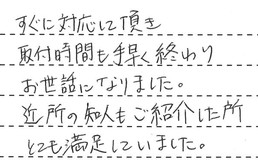 すぐに対応して頂き
取付時間も手早く終わり
お世話になりました。
近所の知人もご紹介した所
とても満足していました。